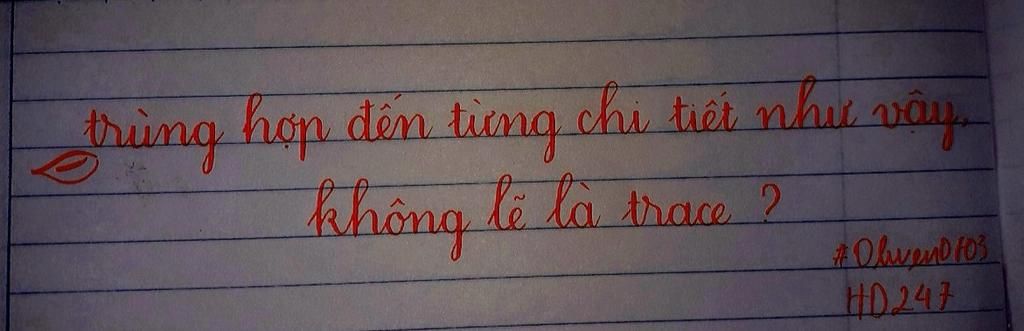 trùng hợp đến từng chi tiết như vậy,
không lẽ là trace ?
HD247